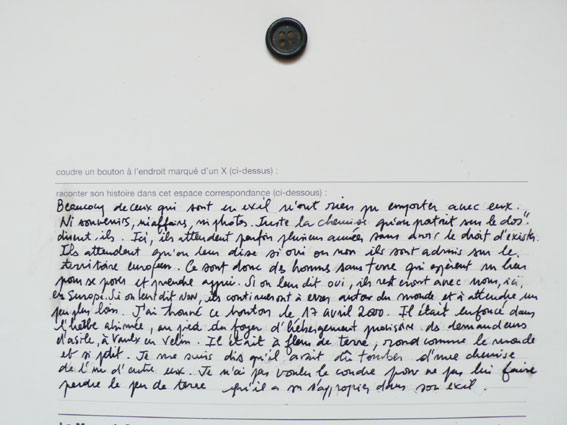 coudre un bouton à l'endroit marqué d'un X (ci-dessus) :
raconter son histoire dans cet espace correspondance (ci-dessous) :
Beaucoup de ceux qui sont en exil n'ont rien pu emporter avec eux.
Ni souvenirs, ni affaires, ni photos. Juste la chemise qu'on portait sur le dos"
disent-ils. Ici, ils attendent parfois plusieurs années sans avoir le droit d'exister.
Ils attendent qu'on leur dise si oui ou non ils sont admis sur le
territoire européen. Ce sont donc des hommes sans terre qui espèrent un lieu
pour se poser et prendre appui. Si on leur dit oui, ils resteront avec nous, ici,
en Europe. Si on leur dit NON, ils continueront à errer autour du monde et à attendre un
peu plus loin. J'ai trouvé ce bouton le 17 avril 2000. Il était enfoncé dans
l'herbe abîmée, au pied du foyer d'hébergement provisoire de demandeurs
d'asile, à Vaulx en Velin. Il était à fleur de terre, rond comme le monde
et si petit. Je me suis dis qu'il avait dû tomber d'une chemise
de l'un d'entre eux. Je n'ai pas voulu le coudre pour ne pas lui faire
perdre le peu de terre qu'il a su s'approprier dans son exil.